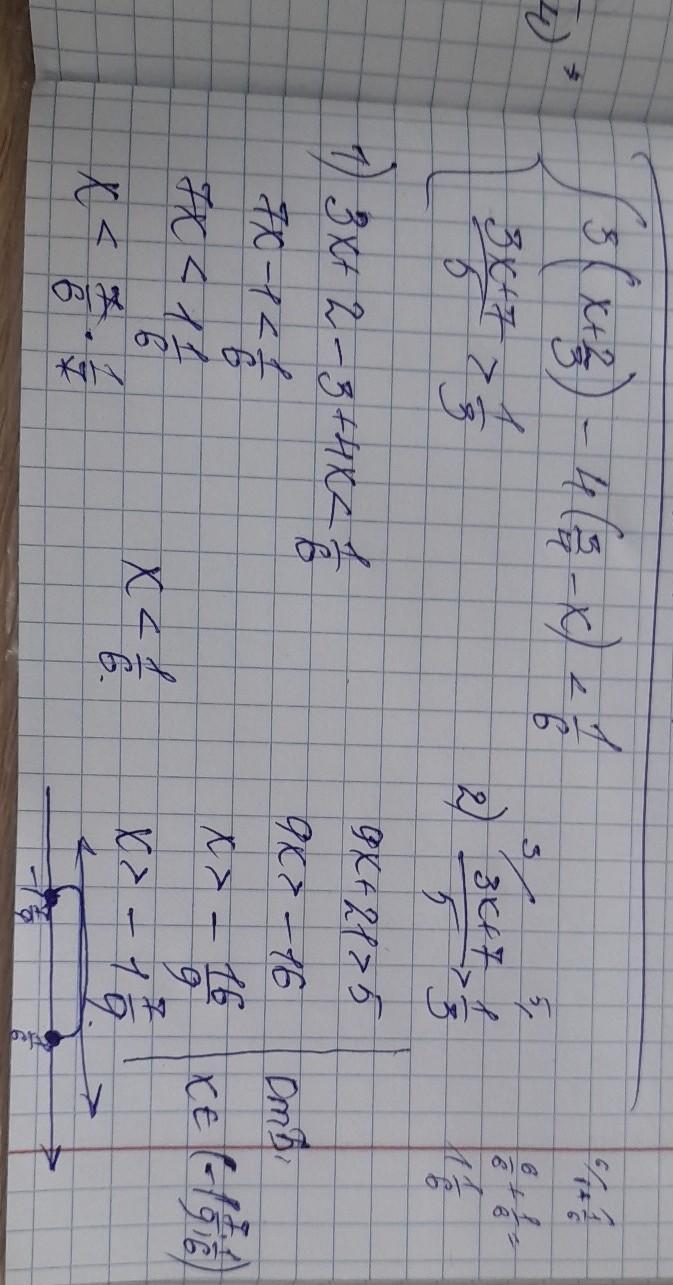 4) *
3(x+2/3) - 4(3/4 - x) < 1/6
(3x+7)/5 > 1/3
1) 3x+2-3+4x < 1/6
7x-1 < 1/6
7x < 1 1/6
x < 7/6 · 1/7
x < 1/6.
2) 3/ (3x+7)/5 > 1/3 5/
9x+21>5
9x>-16
x > -16/9
x > -1 7/9
Отв:
x∈ (-1 7/9; 1/6)
-1 7/9 1/6
6/ 1 + 1/6
6/6 + 1/6 =
1 1/6